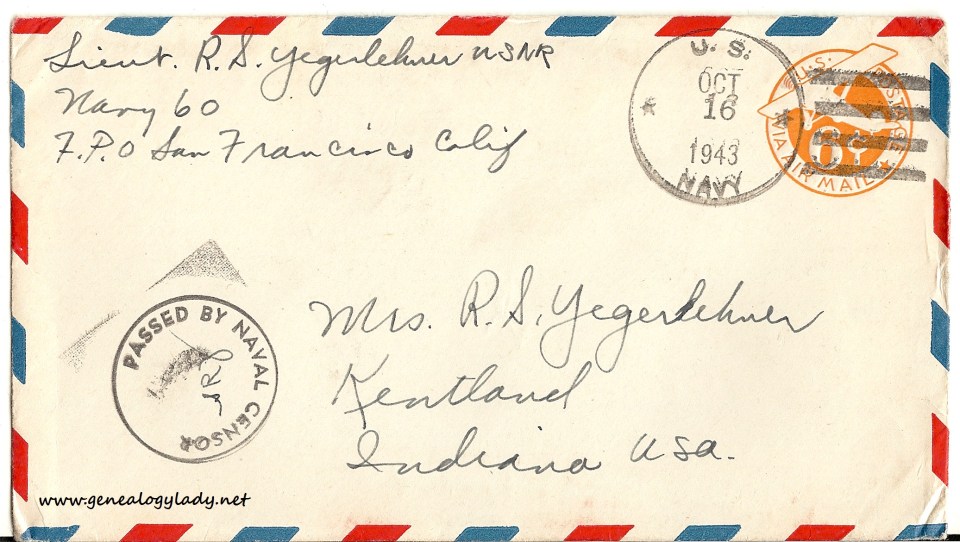 Lieut. R.S. Yegerlehner USNR
Navy 60
F.P.O San Francisco Calif
U.S.
OCT
16
1943
NAVY
U.S. POSTAGE
6¢
VIA AIR MAIL
Mrs. R.S. Yegerlehner
Kentland
Indiana USA.
PASSED BY NAVAL CENSOR
www.genealogylady.net